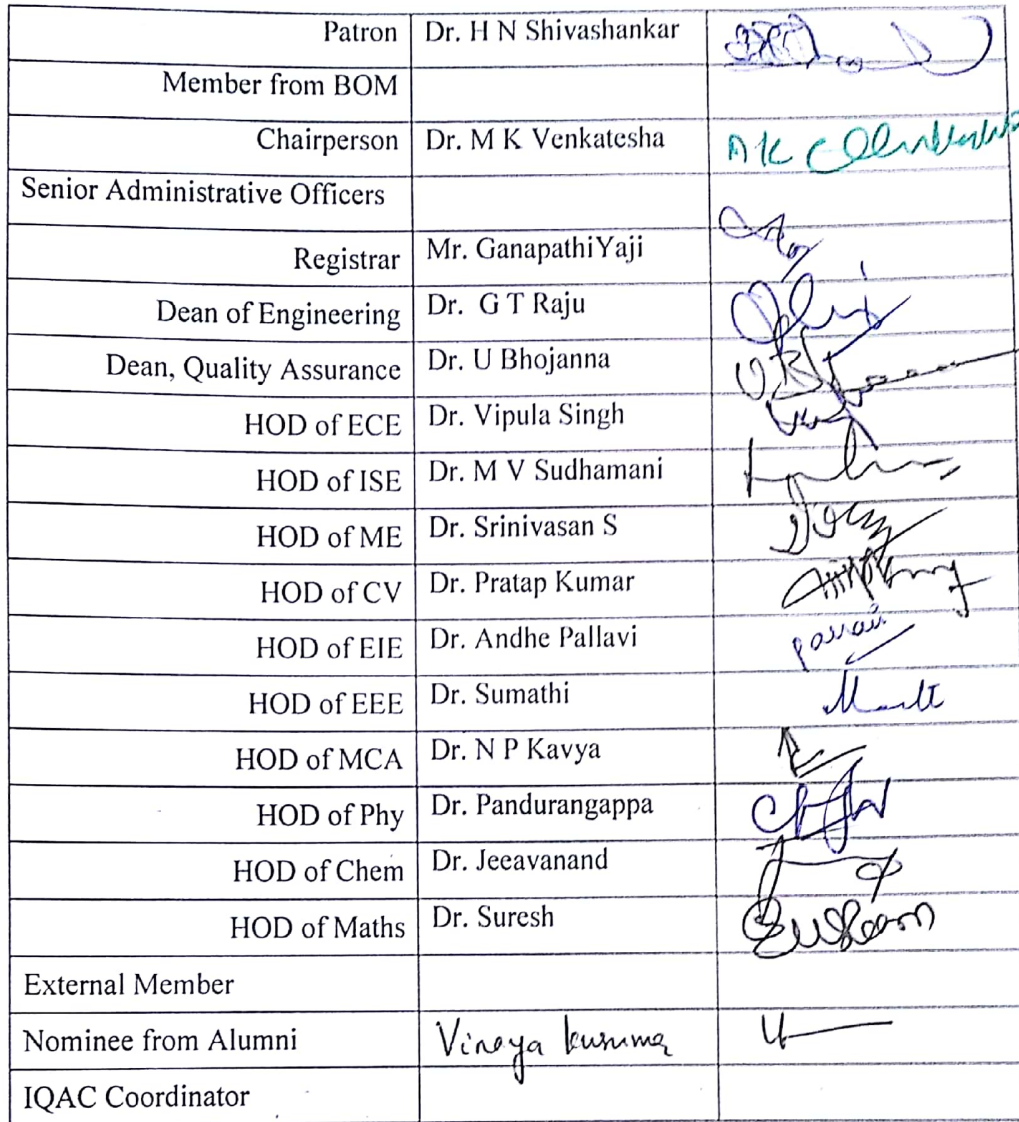 Patron Dr. H N Shivashankar
Member from BOM
Chairperson Dr. M K Venkatesha
Senior Administrative Officers
Registrar Mr. GanapathiYaji
Dean of Engineering Dr. G T Raju
Dean, Quality Assurance Dr. U Bhojanna
HOD of ECE Dr. Vipula Singh
HOD of ISE Dr. M V Sudhamani
HOD of ME Dr. Srinivasan S
HOD of CV Dr. Pratap Kumar
HOD of EIE Dr. Andhe Pallavi
HOD of EEE Dr. Sumathi
HOD of MCA Dr. N P Kavya
HOD of Phy Dr. Pandurangappa
HOD of Chem Dr. Jeeavanand
HOD of Maths Dr. Suresh
External Member
Nominee from Alumni Vinaya kusuma
IQAC Coordinator